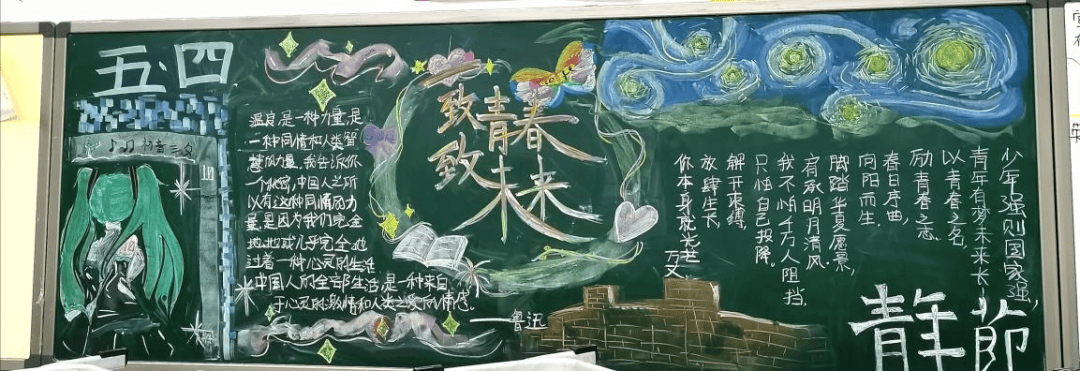 五·四
初音ミク
温良是一种力量,是
一种同情和人类智
慧的力量。我告诉你
一个秘密,中国人之所
以有这种同情的力
量,是因为我们完全
地地或几乎完全地
过着一种心灵的生活
,中国人的全部生活,是一种来自
于心灵的激情和人类之爱的情感。
——鲁迅
致青春
致未来
少年强则国家强,
青年有梦未来长
以青春之名
励青春之志
春日序曲,
向阳而生.
脚踏华夏愿景,
肩承明月清风
我不怕千万人阻挡,
只怕自己投降。
解开束缚,
放肆生长,
你本身就光芒
万丈
青年節